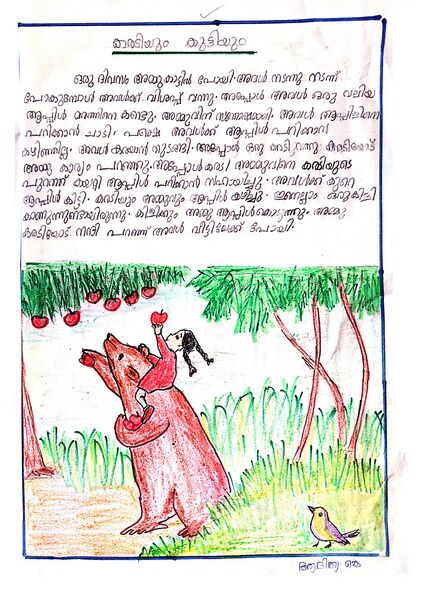 കരടിയും കുട്ടിയും
ഒരു ദിവസം അമ്മു കാട്ടിൽ പോയി. അവൾ നടന്നു നടന്ന്
പോകുമ്പോൾ അവൾക്ക് വിശപ്പ് വന്നു. അപ്പോൾ അവൾ ഒരു വലിയ
ആപ്പിൾ മരത്തിനെ കണ്ടു. അമ്മുവിന് സന്തോഷമായി. അവൾ ആപ്പിളിനെ
പറിക്കാൻ ചാടി. പക്ഷെ അവൾക്ക് ആപ്പിൾ പറിക്കാൻ
കഴിഞ്ഞില്ല. അവൾ കരയാൻ തുടങ്ങി. അപ്പോൾ ഒരു കരടി വന്നു. കരടിയോട്
അമ്മു കാര്യം പറഞ്ഞു. അപ്പോൾ കരടി അമ്മുവിനെ കരടിയുടെ
പുറത്ത് കയറ്റി ആപ്പിൾ പറിക്കാൻ സഹായിച്ചു. അവൾക്ക് കുറെ
ആപ്പിൾ കിട്ടി. കരടിയും അമ്മുവും ആപ്പിൾ കഴിച്ചു. ഇതെല്ലാം ഒരു കിളി
കാണുന്നുണ്ടായിരുന്നു. കിളിക്കും അമ്മു ആപ്പിൾ കൊടുത്തു. അമ്മു
കരടിയോട് നന്ദി പറഞ്ഞ് അവൾ വീട്ടിലേക്ക് പോയി.
ആദിത്യ കെ